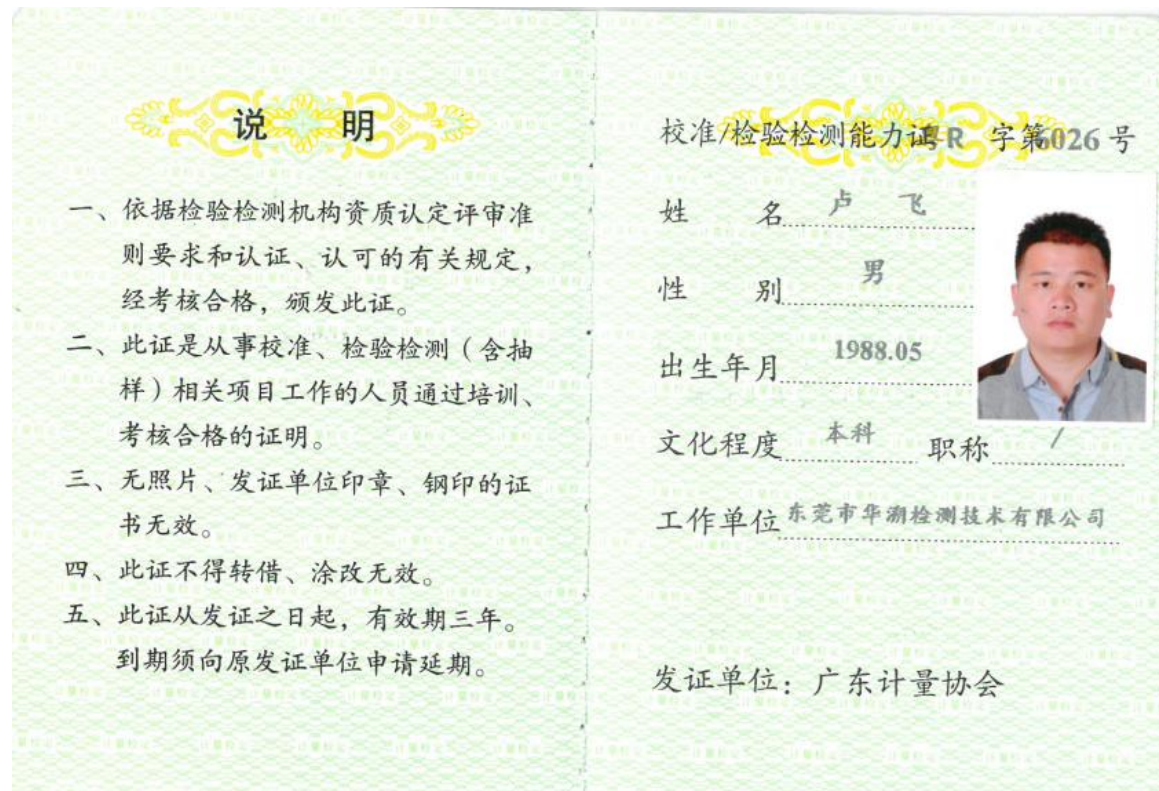 说 明
一、依据检验检测机构资质认定评审准
则要求和认证、认可的有关规定，
经考核合格，颁发此证。
二、此证是从事校准、检验检测（含抽
样）相关项目工作的人员通过培训、
考核合格的证明。
三、无照片、发证单位印章、钢印的证
书无效。
四、此证不得转借、涂改无效。
五、此证从发证之日起，有效期三年。
到期须向原发证单位申请延期。
校准/检验检测能力证粤R 字第6026号
姓 名 卢 飞
性 别 男
出生年月 1988.05
文化程度 本科 职称 /
工作单位 东莞市华溯检测技术有限公司
发证单位：广东计量协会